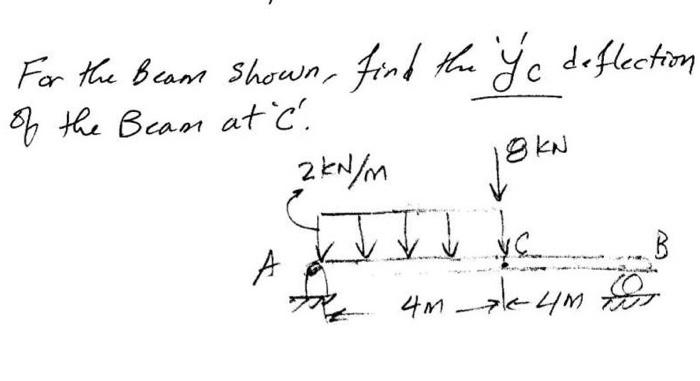 For the Beam Shown, find the 'yc' deflection
of the Beam at 'C'.
8 KN
2 kN/m
C
B
A
4m
4m